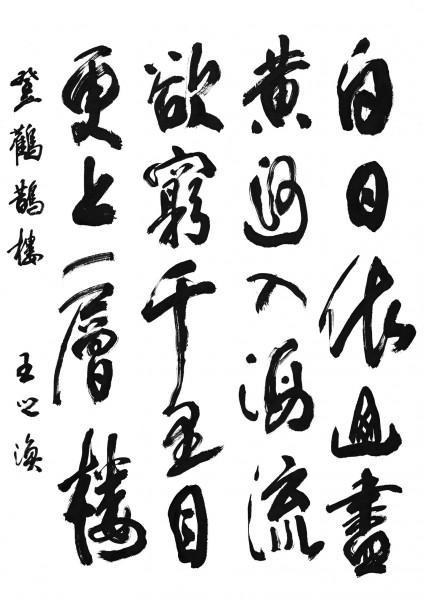 白日依山盡
黄河入海流
欲窮千里目
更上一層樓
登鸛鵲樓
王之渙